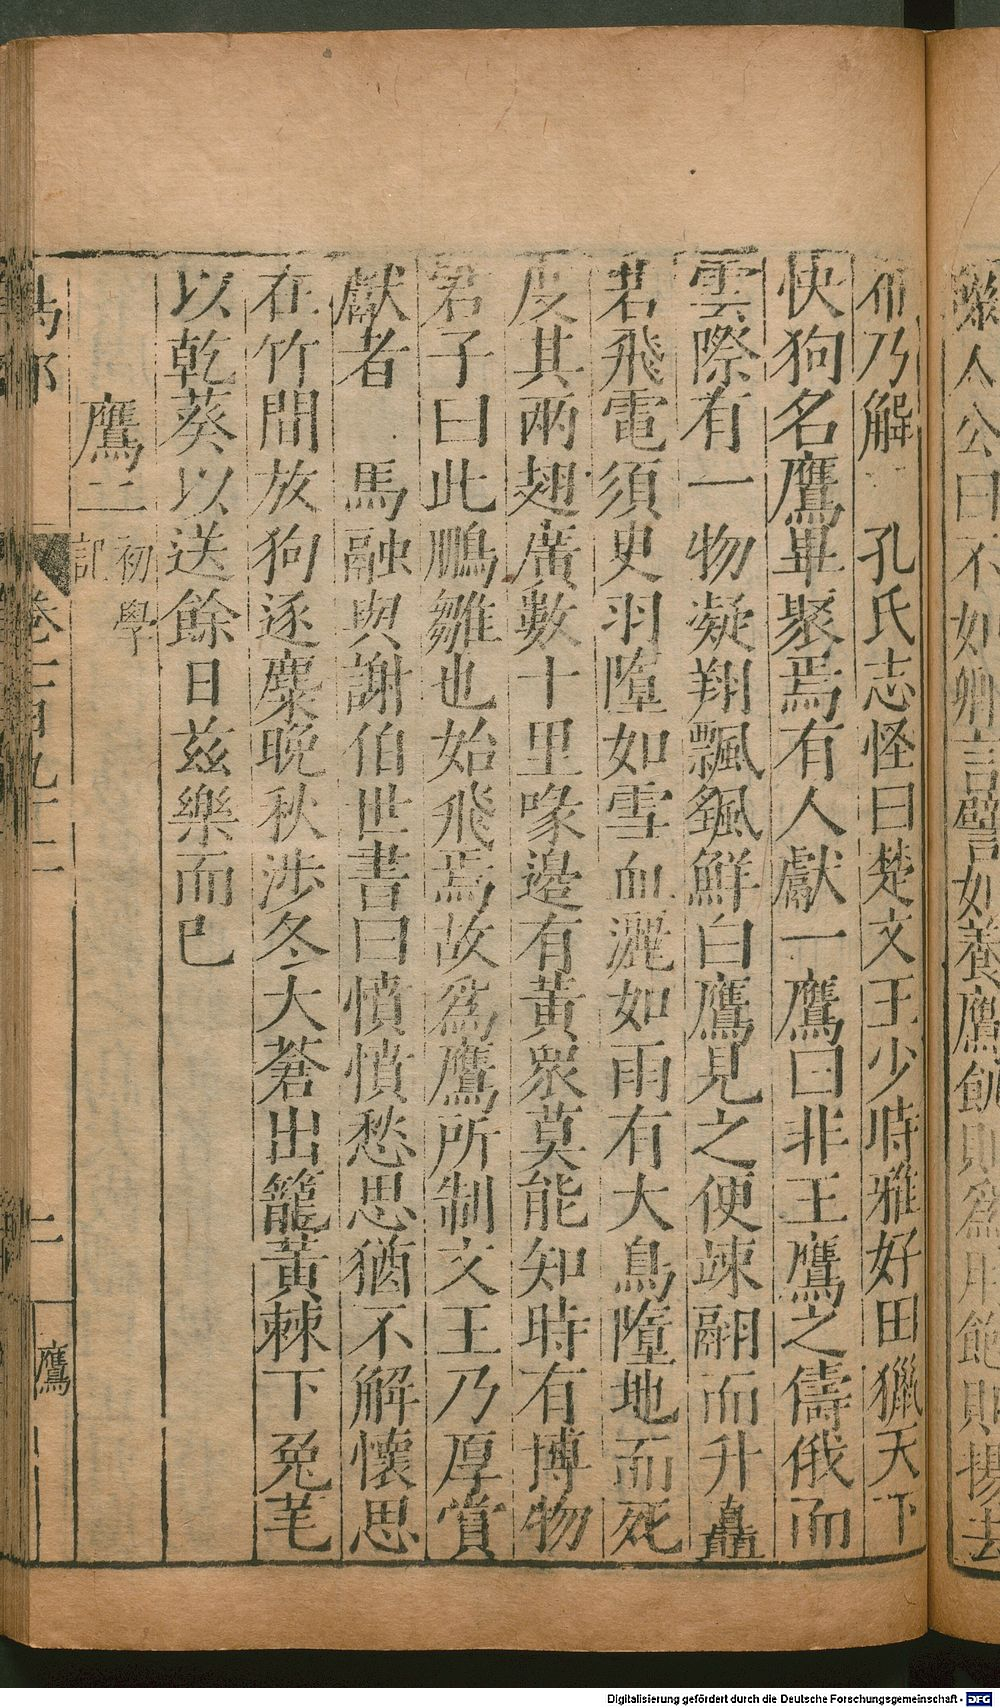 燉人公曰不如卿言譬如養鷹飢則爲用飽則揚去
布乃解 孔氏志怪曰楚文王少時雅好田獵天下
快狗名鷹畢聚焉有人獻一鷹曰非王鷹之儔俄而
雲際有一物凝翔飄颻鮮白鷹見之便竦翮而升矗
若飛電須臾羽墮如雪血灑如雨有大鳥墮地而死
度其兩翅廣數十里喙邊有黃衆莫能知時有博物
君子曰此鵬雛也始飛焉故爲鷹所制文王乃厚賞
獻者 馬融與謝伯世書曰憤憤愁思猶不解懷思
在竹間放狗逐麋晚秋涉冬大蒼出籠黃棘下兔芼
以乾葵以送餘日茲樂而已
鷹二 初學記
鳥部 卷一百九十二 二 鷹
Digitalisierung gefördert durch die Deutsche Forschungsgemeinschaft - DFG